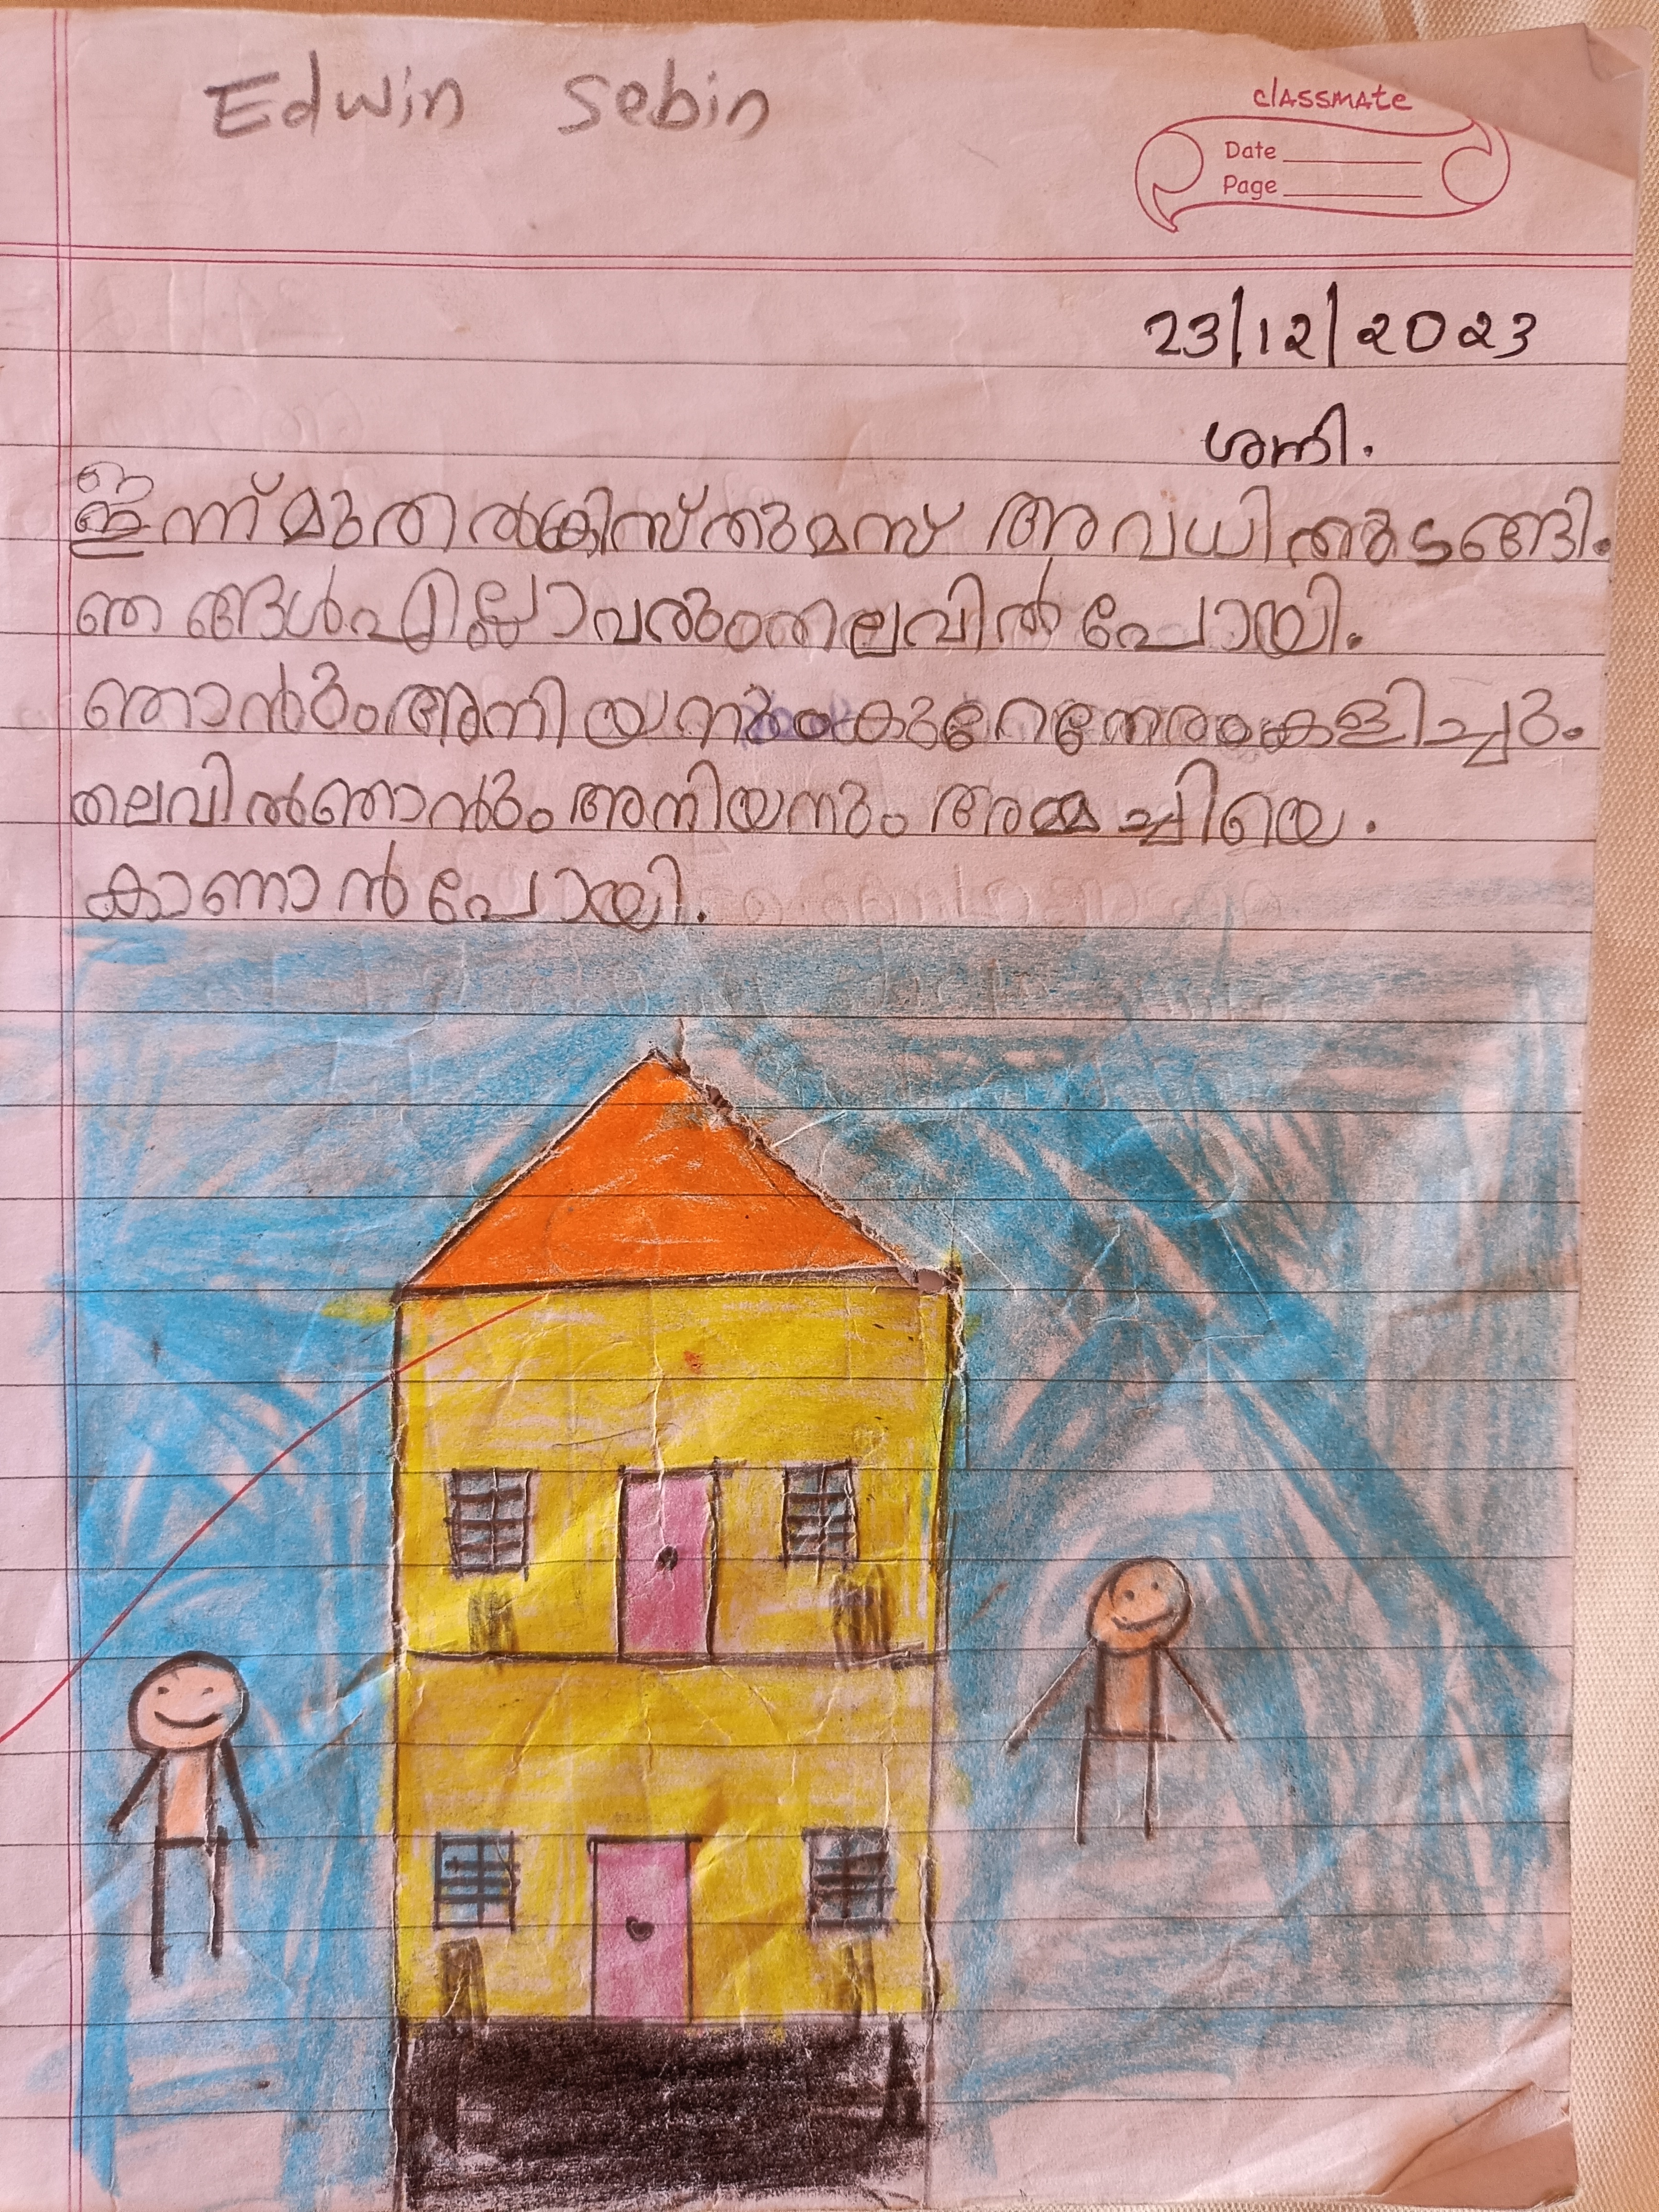 Edwin Sebin
classmate
Date
Page
23/12/2023
ശനി.
ഇന്ന് മുതൽ ക്രിസ്തുമസ് അവധി തുടങ്ങി.
ഞങ്ങൾ എല്ലാവരും തലവിൽ പോയി.
ഞാൻും അനിയനും കുറേ നേരം കളിച്ചു.
തലവിൽ ഞാൻും അനിയനും അമ്മച്ചിയെ.
കാണാൻ പോയി.